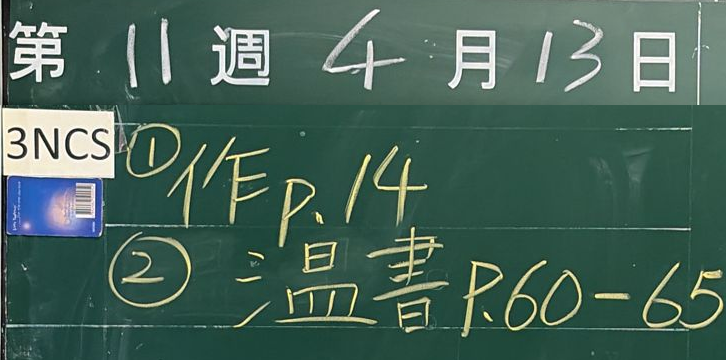 第 11 週 4 月 13 日
3NCS ①作 P.14
②溫書 P.60-65